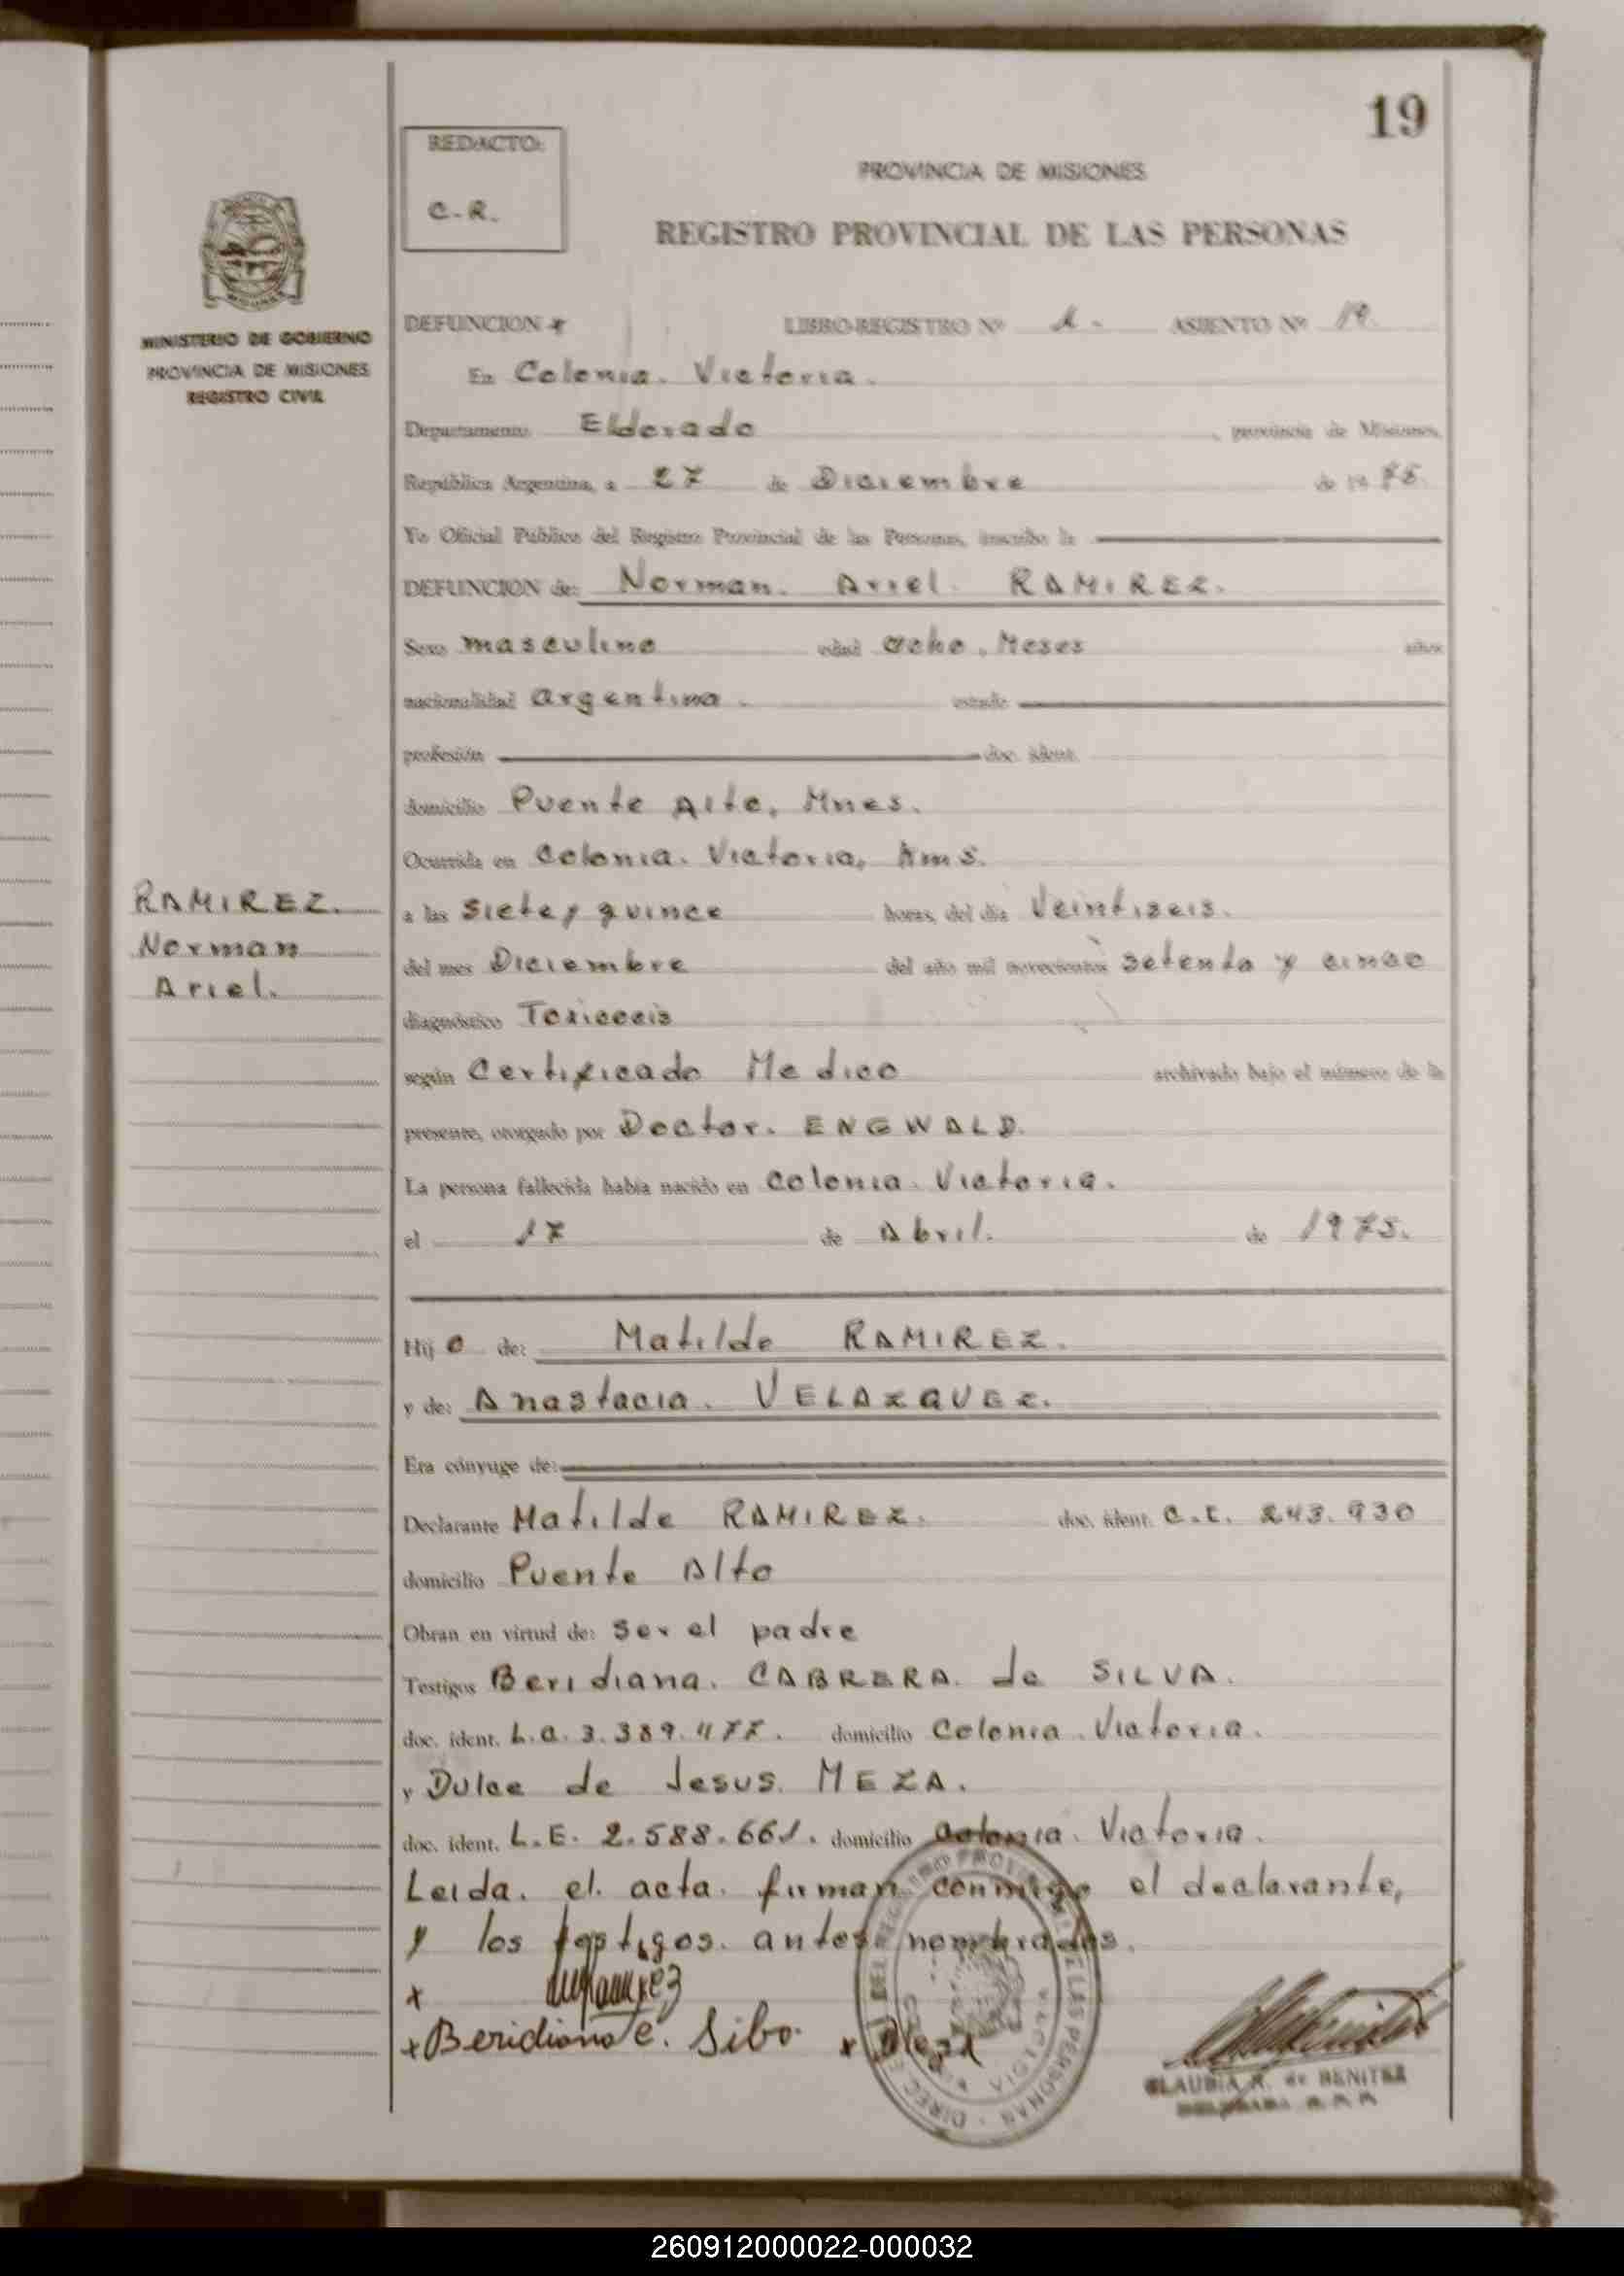 19
REDACTO:
C-R.
PROVINCIA DE MISIONES
REGISTRO PROVINCIAL DE LAS PERSONAS
MINISTERIO DE GOBIERNO
PROVINCIA DE MISIONES
REGISTRO CIVIL
DEFUNCION LIBRO-REGISTRO Nº 1- ASIENTO Nº 19.
En Colonia. Victoria.
Departamento Eldorado, provincia de Misiones,
República Argentina, a 27 de Diciembre de 1975.
Yo Oficial Público del Registro Provincial de las Personas, inscribo la
DEFUNCION de: Norman. Ariel. RAMIREZ.
Sexo masculino edad ocho, Meses años
nacionalidad argentina. estado
profesión doc. ident.
domicilio Puente Alto, Mnes.
Ocurrida en Colonia. Victoria,
a las siete y quince horas, del día Veintiseis.
del mes Diciembre del año mil novecientos setenta y cinco
diagnóstico Toxicocis
según Certificado Medico archivado bajo el número de la
presente, otorgado por Doctor. ENGWALD.
La persona fallecida había nacido en Colonia. Victoria.
el 17 de Abril. de 1975.
RAMIREZ.
Norman
Ariel.
Hijo de: Matilde RAMIREZ.
y de: Anastacia. VELAZQUEZ.
Era cónyuge de:
Declarante Matilde RAMIREZ. doc. ident. C.I. 243.930
domicilio Puente Alto
Obran en virtud de: ser el padre
Testigos Beridiana. CABRERA. de SILVA.
doc. ident. L.C. 3.389.477. domicilio Colonia. Victoria.
y Dulce de Jesus. MEZA.
doc. ident. L.E. 2.588.661. domicilio Colonia. Victoria.
Leida. el. acta. firman conmigo el declarante,
y los testigos. antes nombrados.
x
x Beridiana C. Silva x Meza
CLAUDIA R. de BENITEZ
260912000022-000032